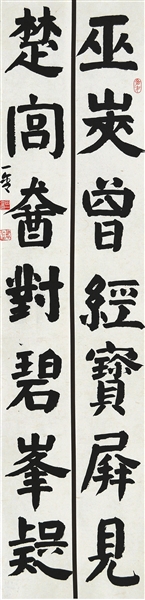 巫峽曾經寶屏見
楚宮猶對碧峯疑